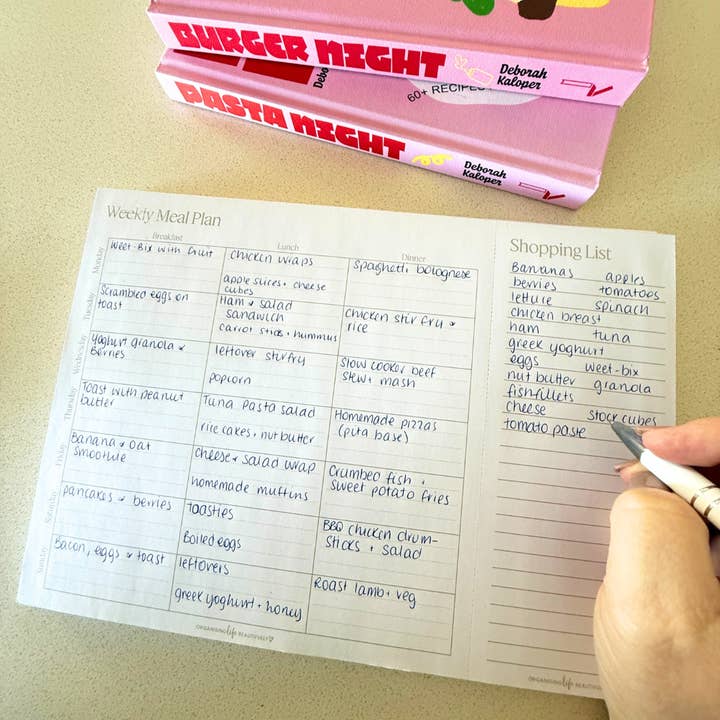 BURGER NIGHT
Deborah
Kaloper
60+ RECIPES
PASTA NIGHT
Deborah
Kaloper
Weekly Meal Plan
Breakfast
Lunch
Dinner
Monday
Weet-Bix with fruit
chicken wraps
apple slices + cheese
cubes
Spaghetti bolognese
Tuesday
Scrambled eggs on
toast
Ham & salad
sandwich
carrot sticks + hummus
chicken stir fry &
rice
Wednesday
Yoghurt granola &
berries
leftover stirfry
popcorn
Slow cooker beef
stew + mash
Thursday
Toast with peanut
butter
Tuna pasta salad
rice cakes + nut butter
Homemade pizzas
(pita base)
Friday
Banana & oat
smoothie
cheese & salad wrap
homemade muffins
Crumbed fish +
sweet potato fries
Saturday
pancakes & berries
toasties
Boiled eggs
BBQ chicken drum-
sticks + salad
Sunday
Bacon, eggs & toast
leftovers
greek yoghurt + honey
Roast lamb + veg
ORGANISING life BEAUTIFULLY
Shopping List
Bananas apples
berries tomatoes
lettuce spinach
chicken breast
ham tuna
greek yoghurt
eggs weet-bix
nut butter granola
fish fillets
cheese stock cubes
tomato paste
ORGANISING life